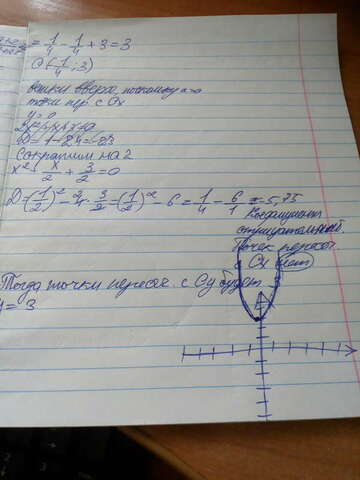 = 1/4 - 1/4 + 3 = 3
O(-1/4; 3)
ветки вверх, поскольку a>0
точки пер. с Ox
y = 0
D = 1 - 24 = -23
Сократим на 2
x² + x/2 + 3/2 = 0
D = (1/2)² - 4 · 3/2 = (1/2)² - 6 = 1/4 - 6/1 = -5,75
отрицательный.
Точек пересеч.
с Ox нет
Тогда точки пересеч. с Oy будет
y = 3